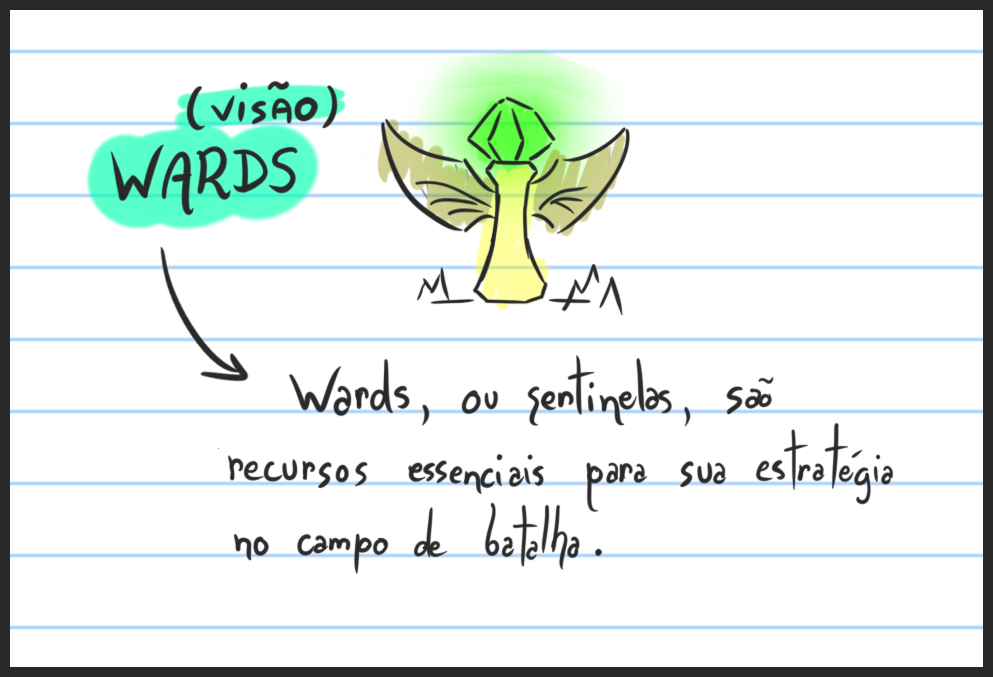 (visão)
WARDS
Wards, ou sentinelas, são
recursos essenciais para sua estratégia
no campo de batalha.